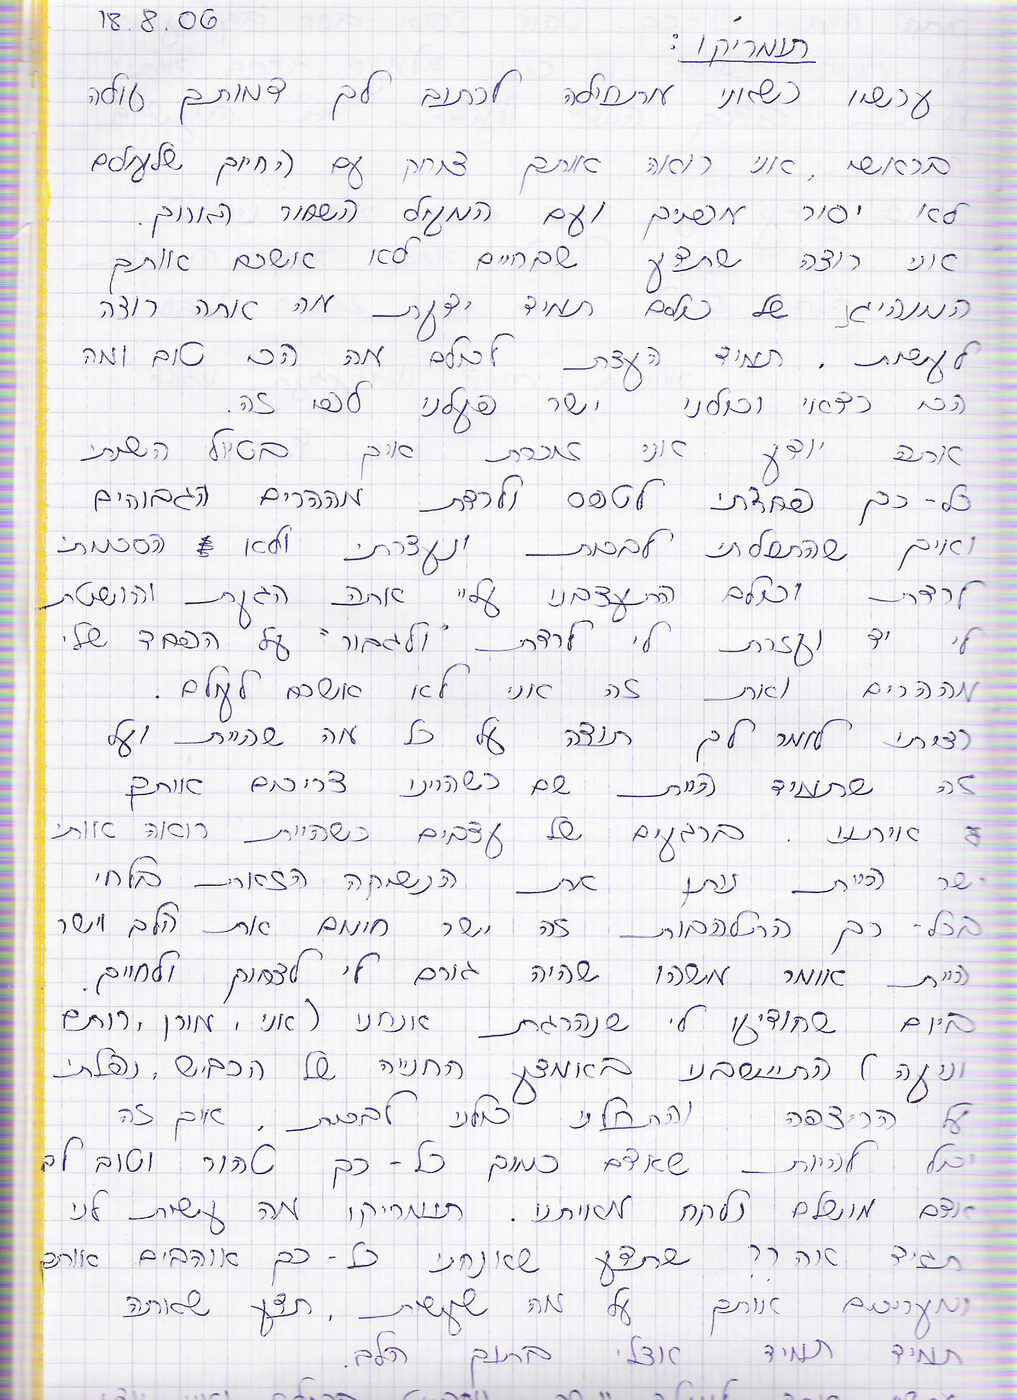 18.8.06
תומריקו:
עכשיו כשאני מתחילה לכתוב לך דמותך עולה
בראשי, אני רואה אותך צוחק עם החיוך שלעולם
לא יסור מפניך ועם המעיל השחור הארוך.
אני רוצה שתדע שבחיים לא אשכח אותך
המנהיג של כולם תמיד ידעת מה אתה רוצה
לעשות, תמיד העצת לכולם מה הכי טוב ומה
הכי כדאי וכולנו ישר פעלנו לפי זה.
אתה יודע אני זוכרת איך בטיול השנתי
כל-כך פחדתי לטפס ולרדת מההרים הגבוהים
ואיך שהתחלתי לבכות ונעצרתי ולא הסכמתי
לרדת וכולם התעצבנו עליי אתה הגעת והושטת
לי יד ועזרת לי לרדת "ולגבור" על הפחד שלי
מההרים ואת זה אני לא אשכח לעולם.
רציתי לומר לך תודה על כל מה שהיית ועל
זה שתמיד היית שם כשהיינו צריכים אותך
איתנו. ברגעים של עצבים כשהיית רואה אותי
ישר היית נותן את הנשיקה הזאת בלחי
בכל-כך התלהבות זה ישר חימם את הלב וישר
היית אומר משהו שהיה גורם לי לצחוק ולחייך.
ביום שהודיעו לי שנהרגת אנחנו (אני, מורן, רותם
ונועה) התיישבנו באמצע החנייה של הכביש, נפלתי
על הריצפה והתחלנו כולנו לבכות, איך זה
יכול להיות שאדם כמוך כל-כך טהור וטוב לב
אדם מושלם נלקח מאיתנו. תומריקו מה עשית לנו
תגיד אה?? שתדע שאנחנו כל-כך אוהבים אותך
ומעריכים אותך על מה שעשית, תדע שאתה
תמיד תמיד אצלי בתוך הלב.